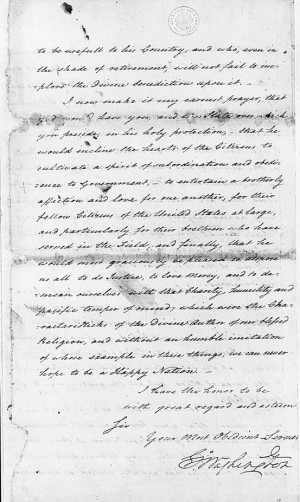 to be usefull to his Country, and who, even in
the shade of retirement, will not fail to im-
plore the divine benediction upon it.
I now make it my earnest prayer, that
God would have you, and the State over which
you preside, in his holy protection, that he
would incline the hearts of the Citizens to
cultivate a spirit of subordination and obedi-
ence to Government, to entertain a brotherly
affection and love for one another, for their
fellow Citizens of the United States at large,
and particularly for their brethren who have
served in the Field, and finally, that he
would most graciously be pleased to dispose
us all to do Justice, to love Mercy, and to de-
mean ourselves with that Charity, humility and
pacific temper of mind, which were the Cha-
racteristicks of the Divine Author of our blessed
Religion, and without an humble imitation
of whose example in these things, we can never
hope to be a Happy Nation.
I have the honor to be
with great regard and esteem
Sir
Your Most Obedient Servant
Go Washington